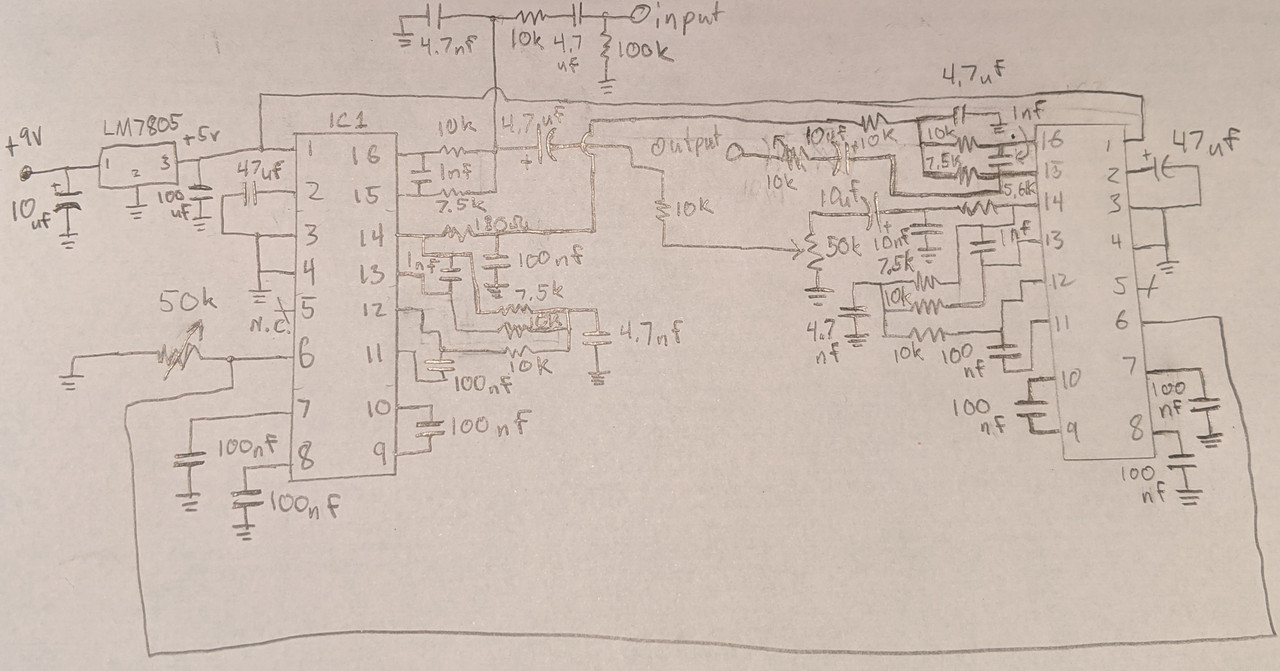 input
4.7nf
10k
4.7
uf
100k
+9V
LM7805
+5v
1
2
3
10
uf
100
uf
47uf
IC1
1
2
3
4
5
6
7
8
16
15
14
13
12
11
10
9
N.C.
50k
100nf
100nf
10k
4.7uf
+
1nf
7.5k
180Ω
1nf
100nf
7.5k
10k
4.7nf
100nf
100nf
10k
output
10k
10uf
10k
4.7uf
1nf
10k
7.5k
5.6k
10uf
+
50k
10nf
1nf
7.5k
10k
4.7
nf
10k
100
nf
100
nf
16
15
14
13
12
11
10
9
1
2
3
4
5
6
7
8
+
47uf
100
nf
100
nf